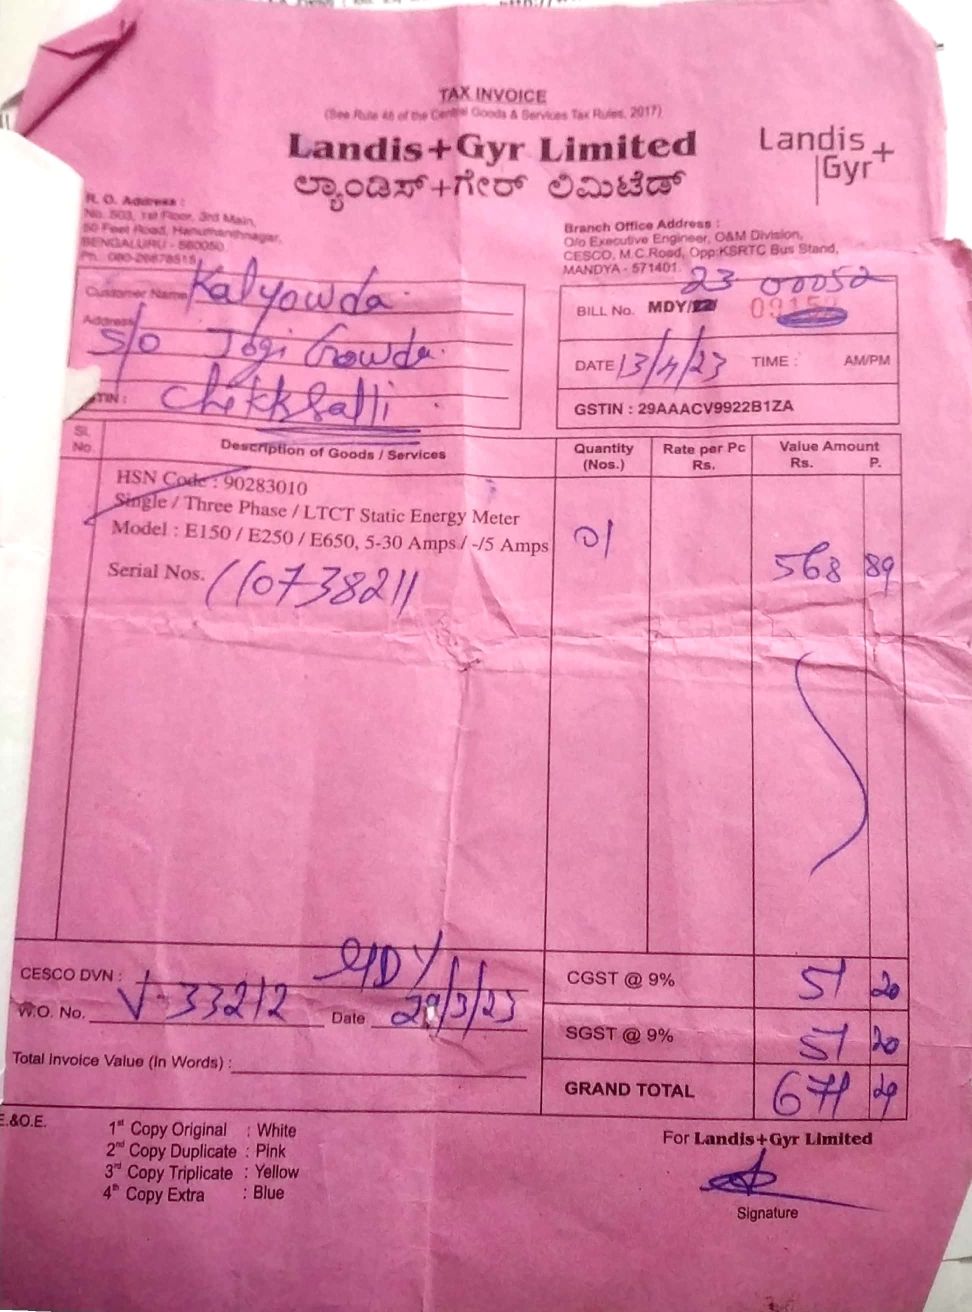 TAX INVOICE
(See Rule 46 of the Central Goods & Services Tax Rules, 2017)
Landis+Gyr Limited
ಲ್ಯಾಂಡಿಸ್+ಗೇರ್ ಲಿಮಿಟೆಡ್
Landis
Gyr+
R. O. Address :
No. 503, 1st Floor, 3rd Main,
50 Feet Road, Hanumanthnagar,
BENGALURU - 560050
Branch Office Address :
O/o Executive Engineer, O&M Division,
CESCO, M.C.Road, Opp:KSRTC Bus Stand,
MANDYA - 571401.
Customer Name Kalyowda
Address S/o Jogi Gowda
GSTIN : Chikkhalli
23 00052
BILL No. MDY/22/
DATE 13/4/23 TIME : AM/PM
GSTIN : 29AAACV9922B1ZA
Sl. No. Description of Goods / Services Quantity (Nos.) Rate per Pc Rs. Value Amount Rs. P.
HSN Code : 90283010
Single / Three Phase / LTCT Static Energy Meter
Model : E150 / E250 / E650, 5-30 Amps / -/5 Amps 01 568 89
Serial Nos. 110738211
CESCO DVN : MDY
W.O. No. V-33212 Date 29/3/23
Total Invoice Value (In Words) :
CGST @ 9% 51 20
SGST @ 9% 51 20
GRAND TOTAL 671 29
E.&O.E.
1st Copy Original : White
2nd Copy Duplicate : Pink
3rd Copy Triplicate : Yellow
4th Copy Extra : Blue
For Landis+Gyr Limited
Signature